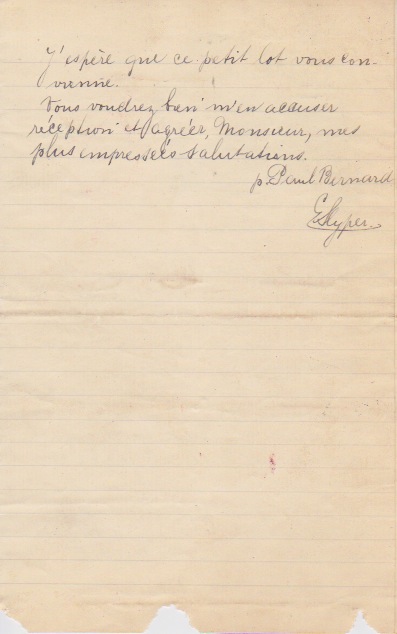 J'espère que ce petit lot vous con-
vienne.
Vous voudrez bien m'en accuser
réception et agréer, Monsieur, mes
plus empressées salutations.
p. Paul Bernard